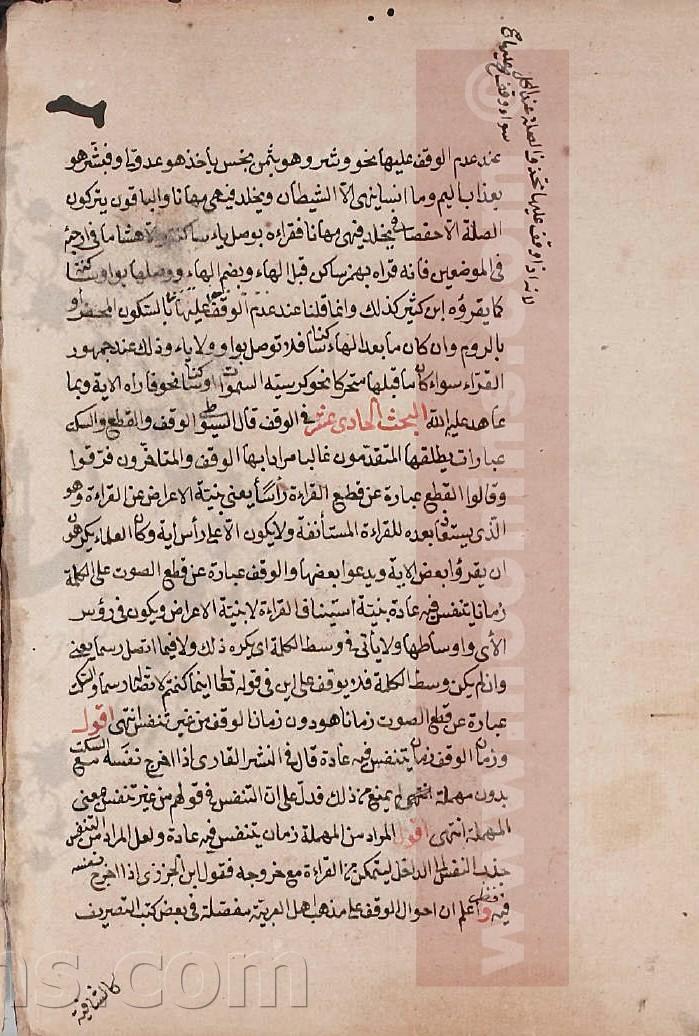 لانه اذا وقف عليها تحذف الصلة عند الكل
سواء وقف عليها
عند عدم الوقف عليها نحو وشروه بثمن بخس ياخذه عدو فبشره
بعذاب اليم وما انسانيه الا الشيطان ويخلد فيه مهانا والباقون يتركون
الصلة الا حفصا في يخلد فيه مهانا فقراءه بوصل ياء ساكنة والا هشاما في ارجئه
في الموضعين فانه قراه بهمز ساكن قبل الهاء وبضم الهاء ووصلها بواو ساكنة
كما يقرؤه ابن كثير كذلك وانما قلنا عند عدم الوقف عليها بالسكون المحض او
بالروم وان كان ما بعد الهاء ساكنا فلا توصل بواو ولا ياء وذلك عند جمهور
القراء سواء كان ما قبلها متحركا نحو كرسيه السموات او ساكنا نحو فاراه الاية وبما
عاهد عليه الله البحث الحادى عشر في الوقف قال السيوطى الوقف والقطع والسكت
عبارات يطلقها المتقدمون غالبا مرادا بها الوقف والمتاخرون فرقوا
وقالوا القطع عبارة عن قطع القراءة رأسا يعنى بنية الاعراض عن القراءة وهو
الذى يستعاذ بعده للقراءة المستأنفة ولا يكون الا على رأس اية وكان العلماء يكرهون
ان يقرؤا بعض الاية ويدعوا بعضها والوقف عبارة عن قطع الصوت على الكلمة
زمانا يتنفس فيه عادة بنية استيناف القراءة لا بنية الاعراض ويكون في رؤس
الأى واوساطها ولا يأتى في وسط الكلمة اى يكره ذلك ولا فيما اتصل رسما يعنى
وان لم يكن وسط الكلمة فلا يوقف على اين في قوله تعالى اينما كنتم لاتصاله رسما والسكت
عبارة عن قطع الصوت زمانا هو دون زمان الوقف من غير تنفس انتهى اقول
وزمان الوقف زمان يتنفس فيه عادة قال في النشر القارى اذا اخرج نفسه مع السكت
بدون مهملة لم يمنع من ذلك فدل على ان التنفس في قولهم من غير تنفس بمعنى
المهملة انتهى اقول المراد من المهملة زمان يتنفس فيه عادة ولعل المراد من التنفس
جذب النفس الى الداخل ليتمكن من القراءة مع خروجه فقول ابن الجزرى اذا اخرج نفسه
فيه واعلم ان احوال الوقف على مذهب اهل العربية مفصلة في بعض كتب التصريف
كالشافية